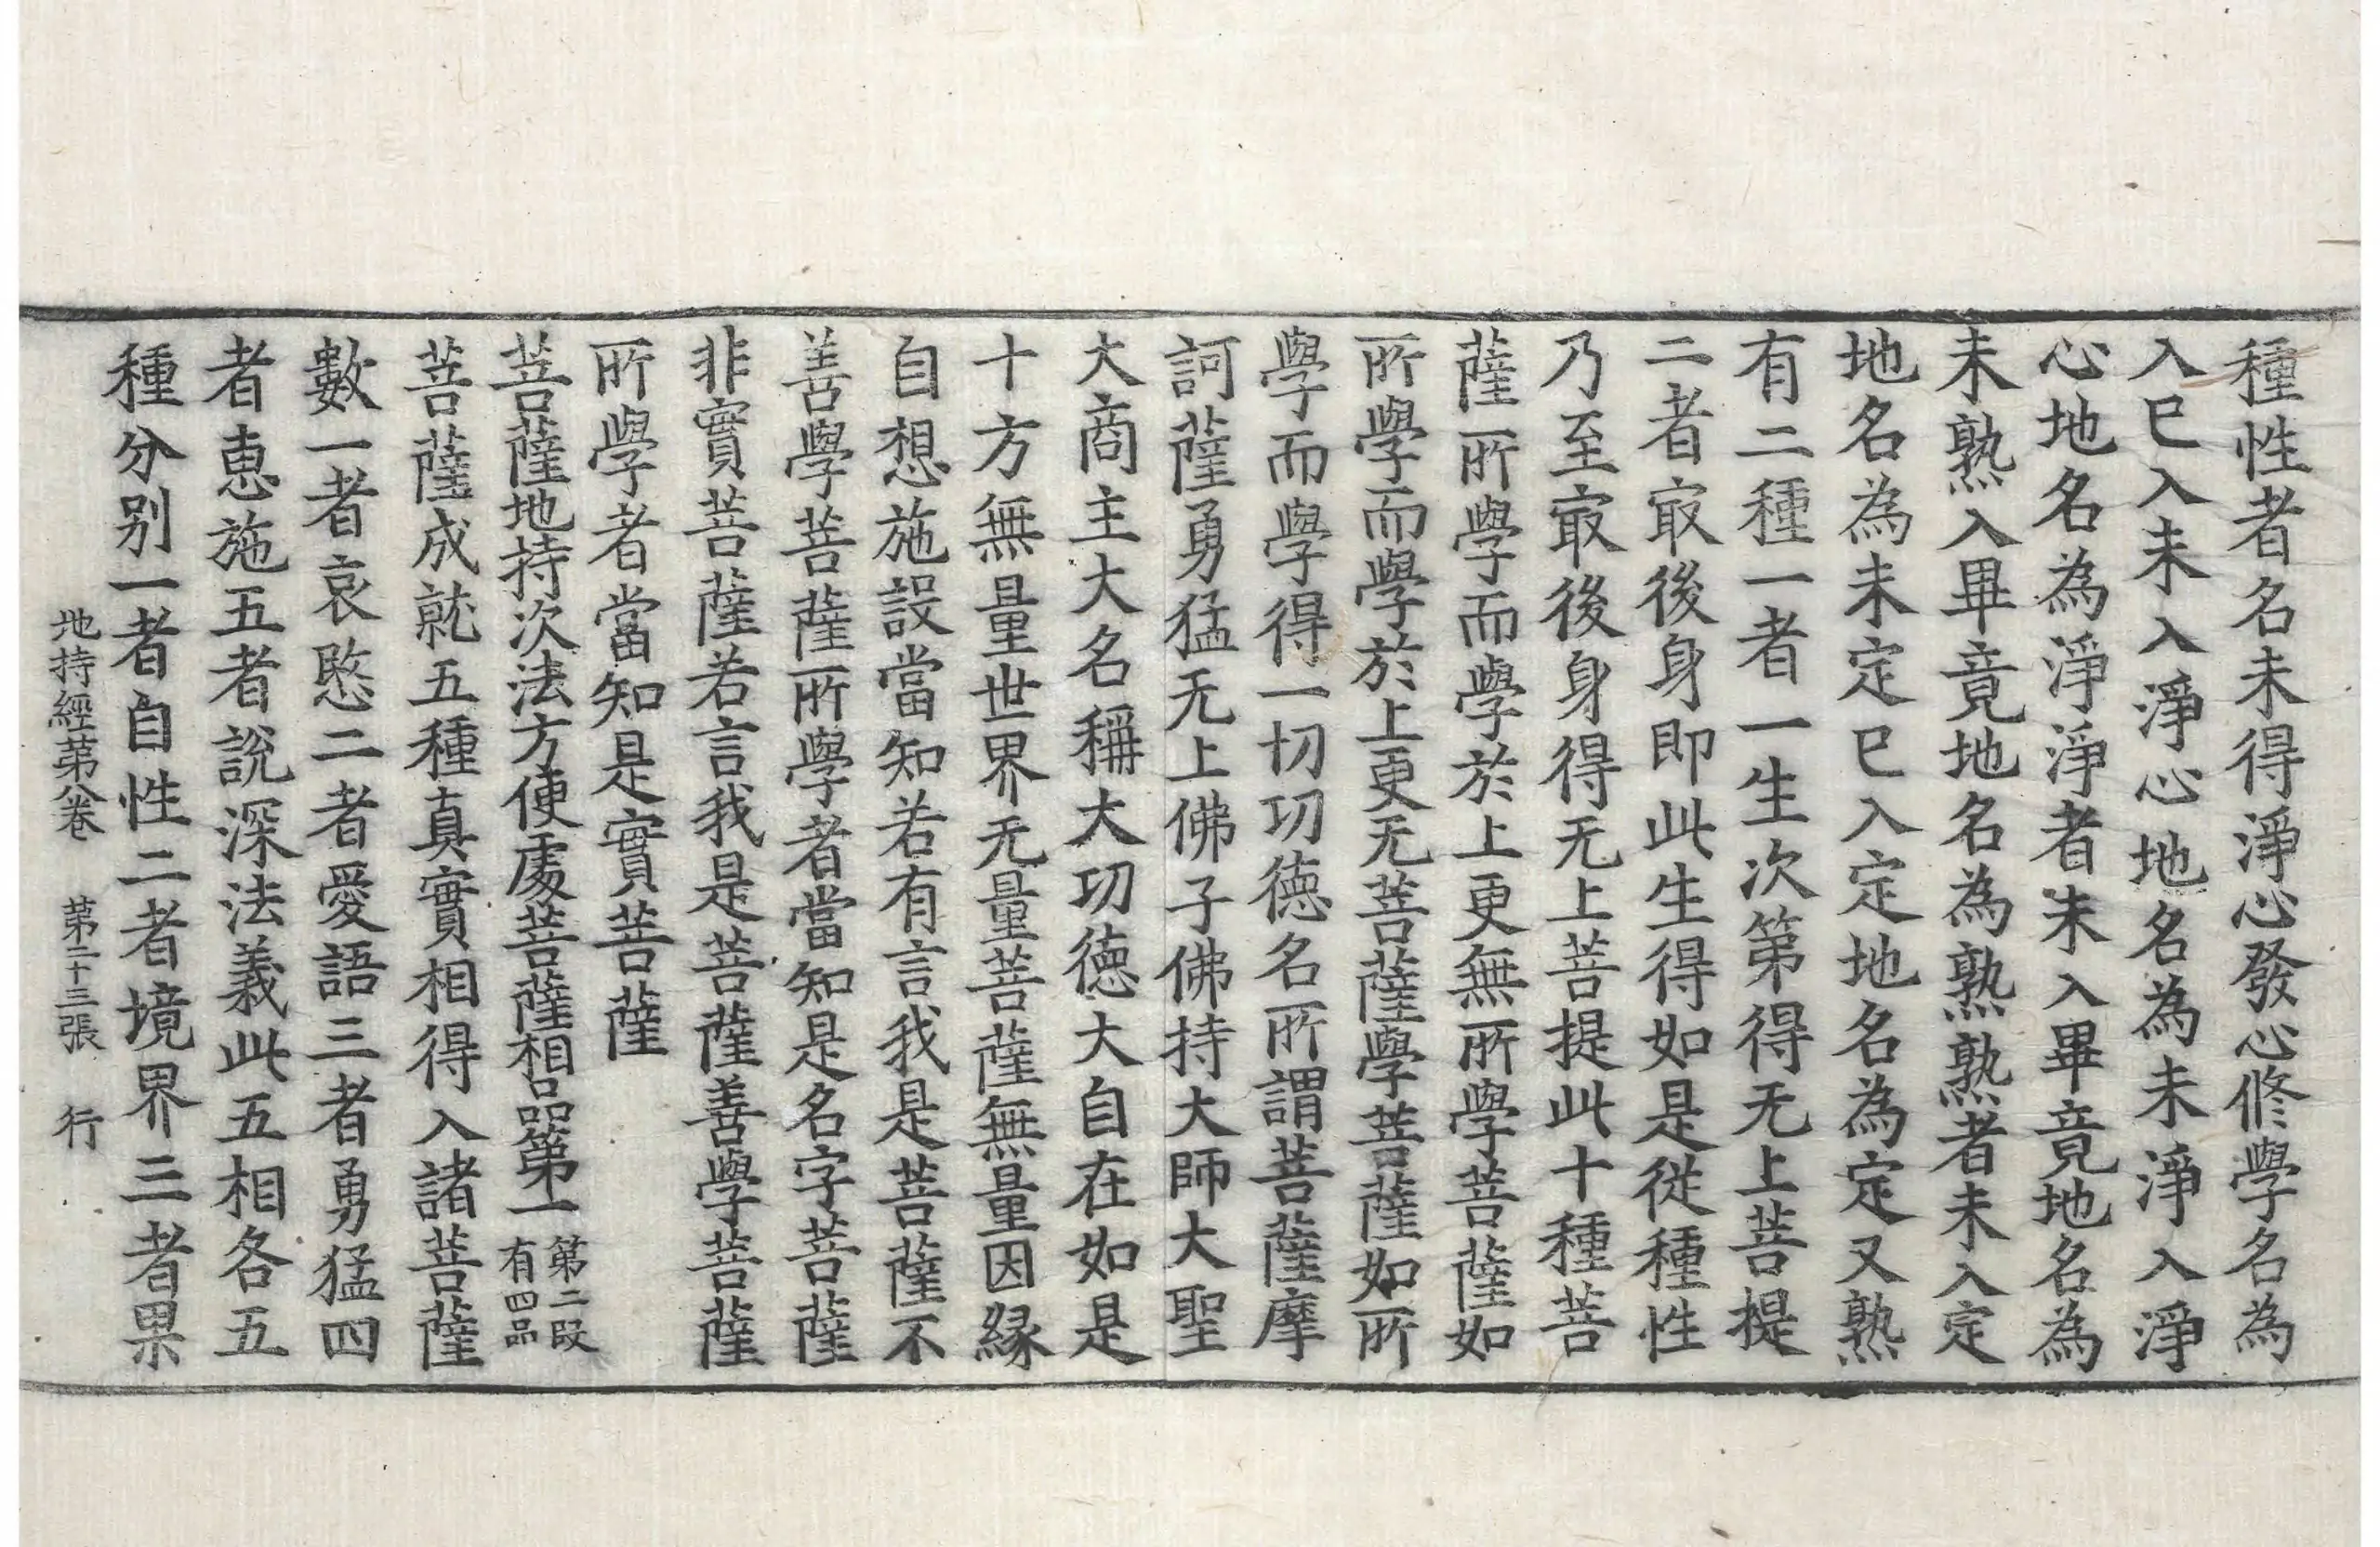 種性者名未得淨心發心修學名為
入已入未入淨心地名為未淨入淨
心地名為淨淨者未入畢竟地名為
未熟入畢竟地名為熟熟者未入定
地名為未定已入定地名為定又熟
有二種一者一生次第得无上菩提
二者㝡後身即此生得如是從種性
乃至㝡後身得无上菩提此十種菩
薩所學而學於上更無所學菩薩如
所學而學於上更无菩薩學菩薩如所
學而學得一切功德名所謂菩薩摩
訶薩勇猛无上佛子佛持大師大聖
大商主大名稱大功德大自在如是
十方無量世界无量菩薩無量因緣
自想施設當知若有言我是菩薩不
善學菩薩所學者當知是名字菩薩
非實菩薩若言我是菩薩善學菩薩
所學者當知是實菩薩
菩薩地持次法方便處菩薩相品第一 第二段
有四品
菩薩成就五種真實相得入諸菩薩
數一者哀愍二者愛語三者勇猛四
者惠施五者說深法義此五相各五
種分別一者自性二者境界三者果
地持經第八卷 第二十三張 行